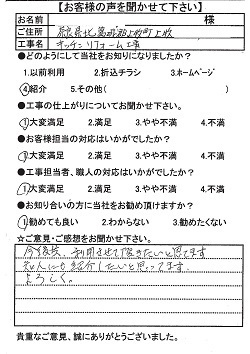 【お客様の声を聞かせて下さい】
お名前 様
ご住所
工事名 キッチンリフォーム工事
●どのようにして当社をお知りになりましたか?
1.以前利用 2.折込チラシ 3.ホームページ
④紹介 5.その他(
●工事の仕上がりについてお聞かせ下さい。
①大変満足 2.満足 3.やや不満 4.不満
●お客様担当の対応はいかがでしたか?
①大変満足 2.満足 3.やや不満 4.不満
●工事担当者、職人の対応はいかがでしたか?
①大変満足 2.満足 3.やや不満 4.不満
●お知り合いの方に当社をお勧め頂けますか?
①勧めても良い 2.わからない 3.勧めたくない
☆ご意見・ご感想をお聞かせ下さい。
今後共、利用させて頂きたいと思てます
知人にも紹介したいと思ってます。
よろしく。
貴重なご意見、誠にありがとうございました。